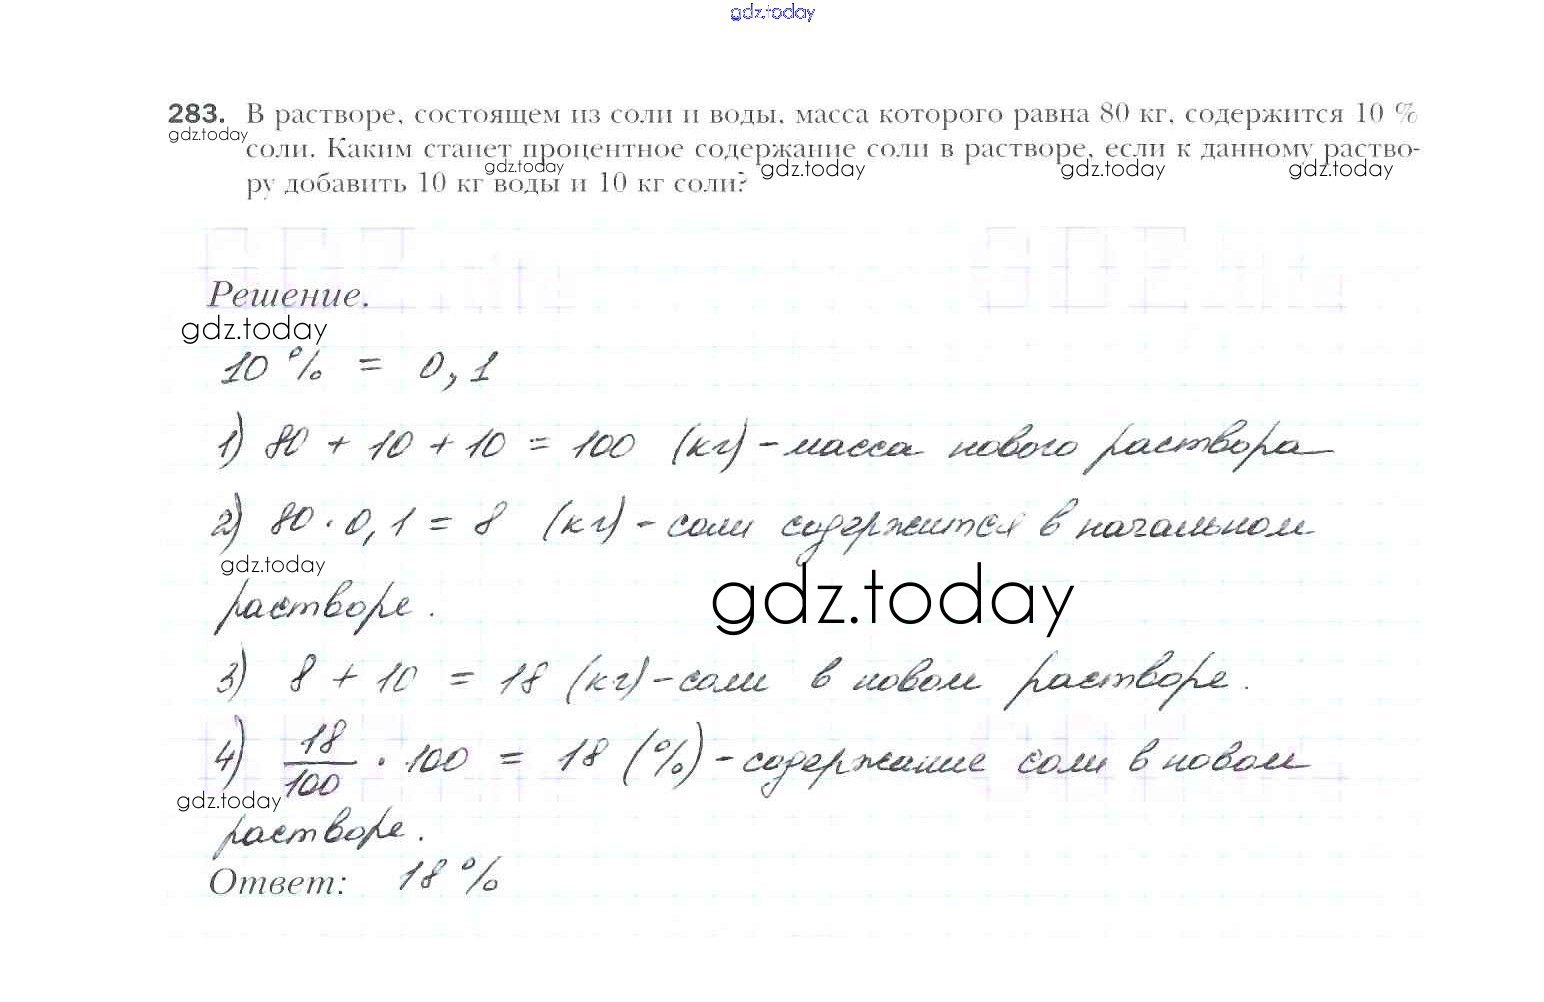 gdz.today
283. В растворе, состоящем из соли и воды, масса которого равна 80 кг, содержится 10 %
gdz.today
соли. Каким станет процентное содержание соли в растворе, если к данному раство-
gdz.today gdz.today gdz.today gdz.today
ру добавить 10 кг воды и 10 кг соли?
Решение.
gdz.today
10 % = 0,1
1) 80 + 10 + 10 = 100 (кг) – масса нового раствора
2) 80 · 0,1 = 8 (кг) – соли содержится в начальном
gdz.today
gdz.today
растворе.
3) 8 + 10 = 18 (кг) – соли в новом растворе.
4) 18/100 · 100 = 18 (%) – содержание соли в новом
gdz.today
растворе.
Ответ: 18 %